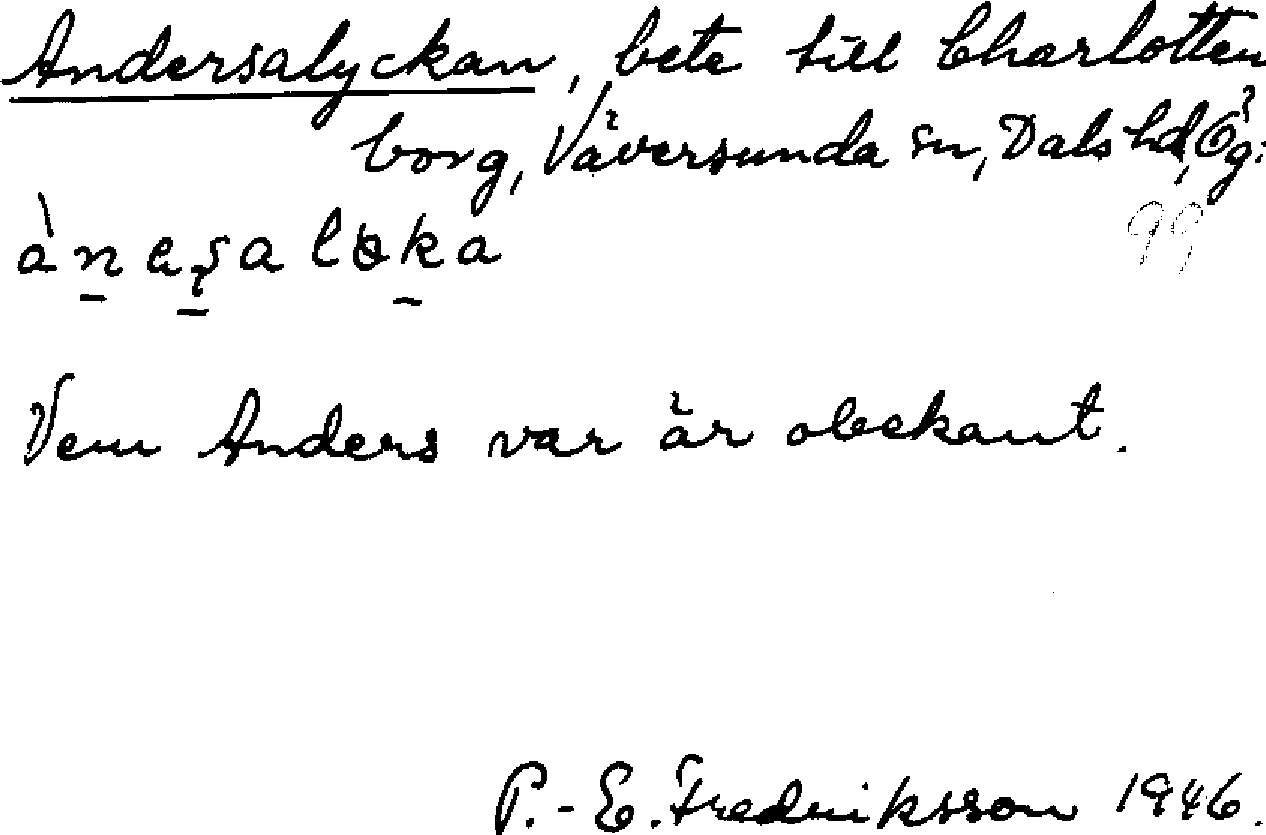 Andersalyckan, bete till Charlotten
borg, Väversunda sn, Dals hd, Ög:
99
Vem Anders var är obekant.
P.-E. Fredriksson 1946.